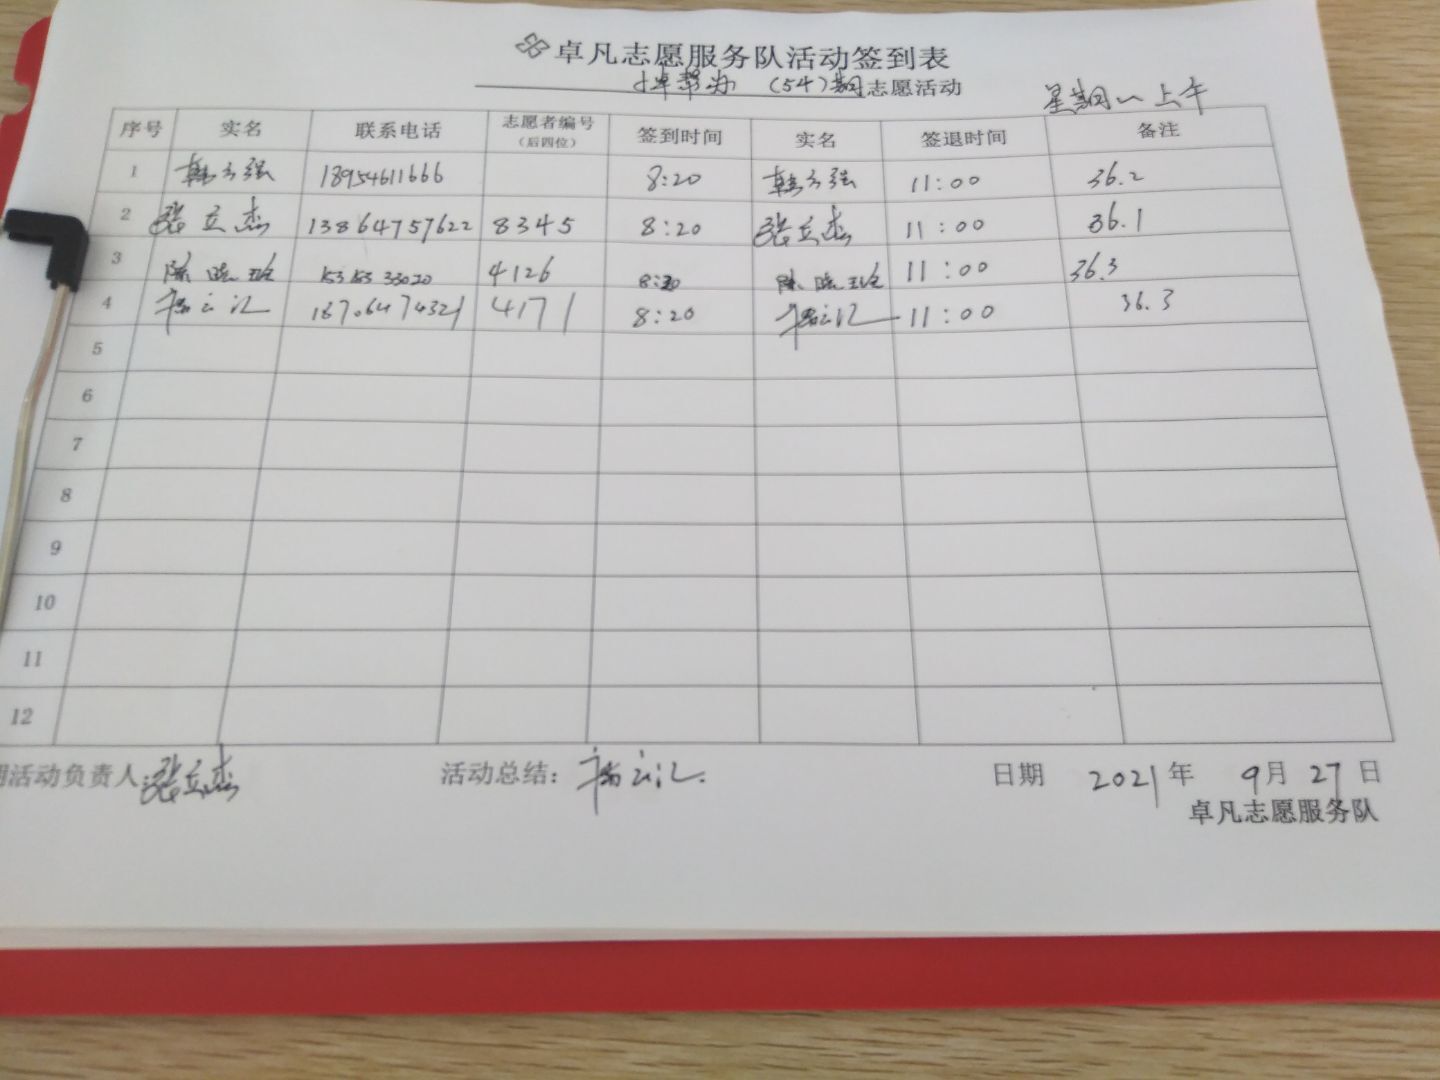 卓凡志愿服务队活动签到表
帮办 (54)期志愿活动 星期一上午
序号 实名 联系电话 志愿者编号(后四位) 签到时间 实名 签退时间 备注
1 18954611666 8:20 11:00 36.2
2 张立杰 13864757622 8345 8:20 张立杰 11:00 36.1
3 陈晓玲 4126 8:20 陈晓玲 11:00 36.3
4 杨云汇 18706474321 4171 8:20 杨云汇 11:00 36.3
5
6
7
8
9
10
11
12
期活动负责人:张立杰 活动总结:杨云汇. 日期 2021年 9月 27日
卓凡志愿服务队